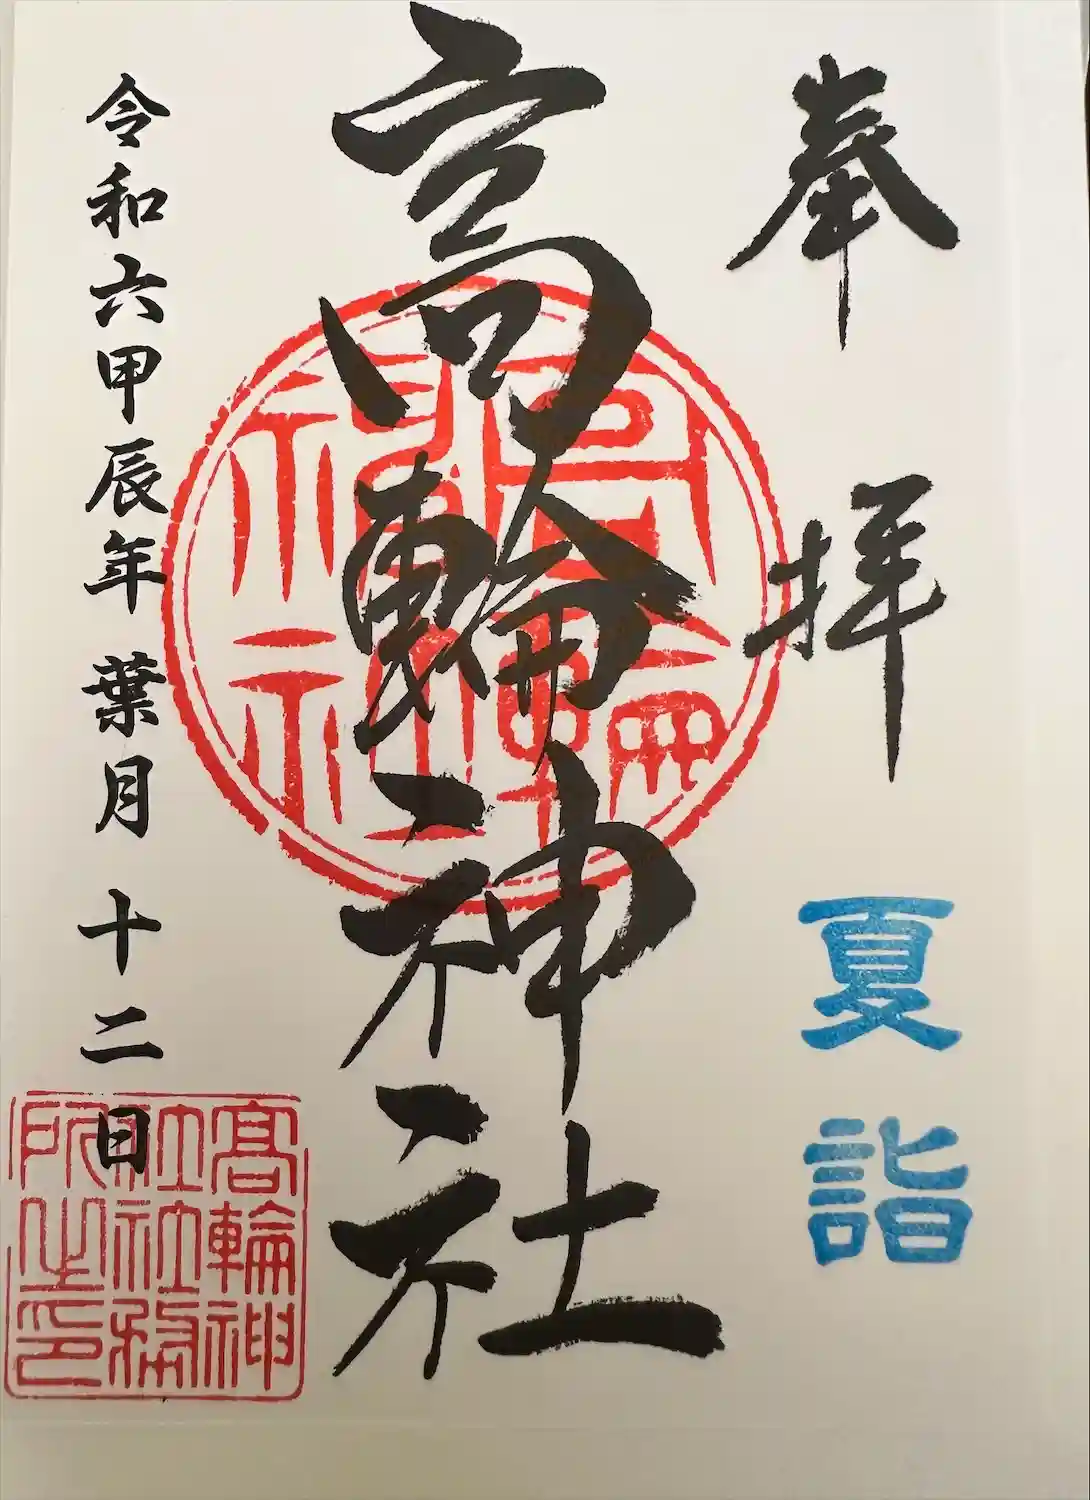 奉拝
夏詣
高輪神社
令和六甲辰年 葉月 十二日
高輪神
社社務
所之印